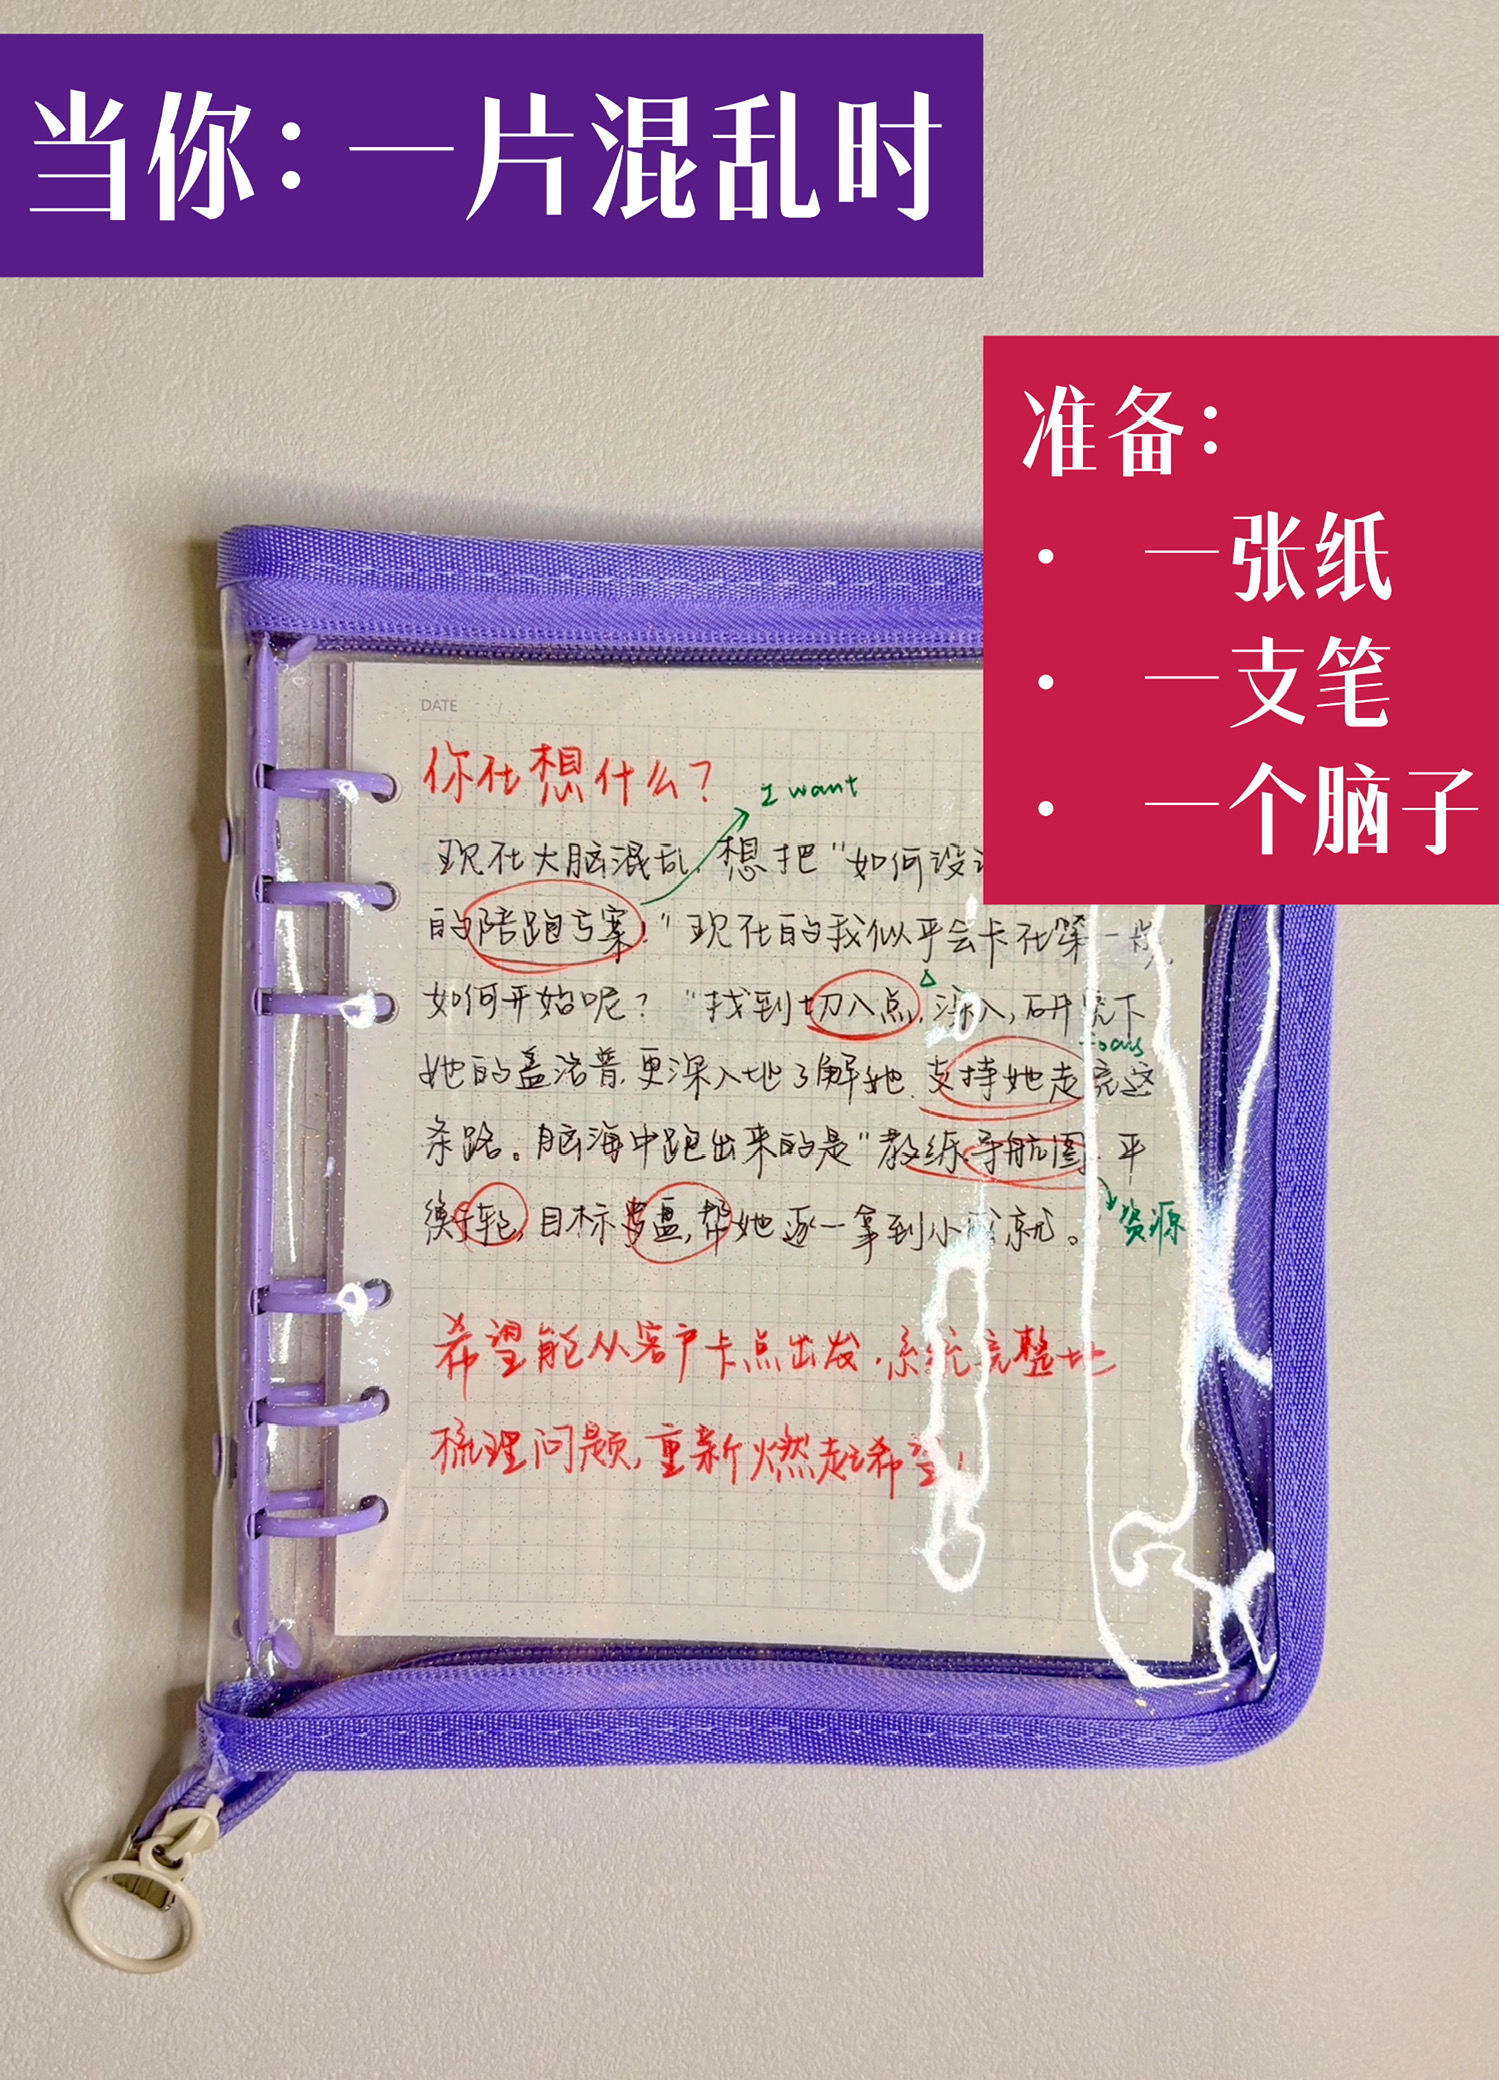 当你：一片混乱时
准备：
• 一张纸
• 一支笔
• 一个脑子
DATE
你在想什么？
I want
现在大脑混乱，想把“如何设
的陪跑方案！”现在的我似乎会卡在第一步，
如何开始呢？“找到切入点，深入，研究下
focus
她的盖洛普，更深入地了解她，支持她走完这
条路。脑海中跑出来的是“教练导航图，平
衡轮，目标罗盘，帮她逐一拿到小成就。
资源
希望能从客户卡点出发，系统完整地
梳理问题，重新燃起希望！